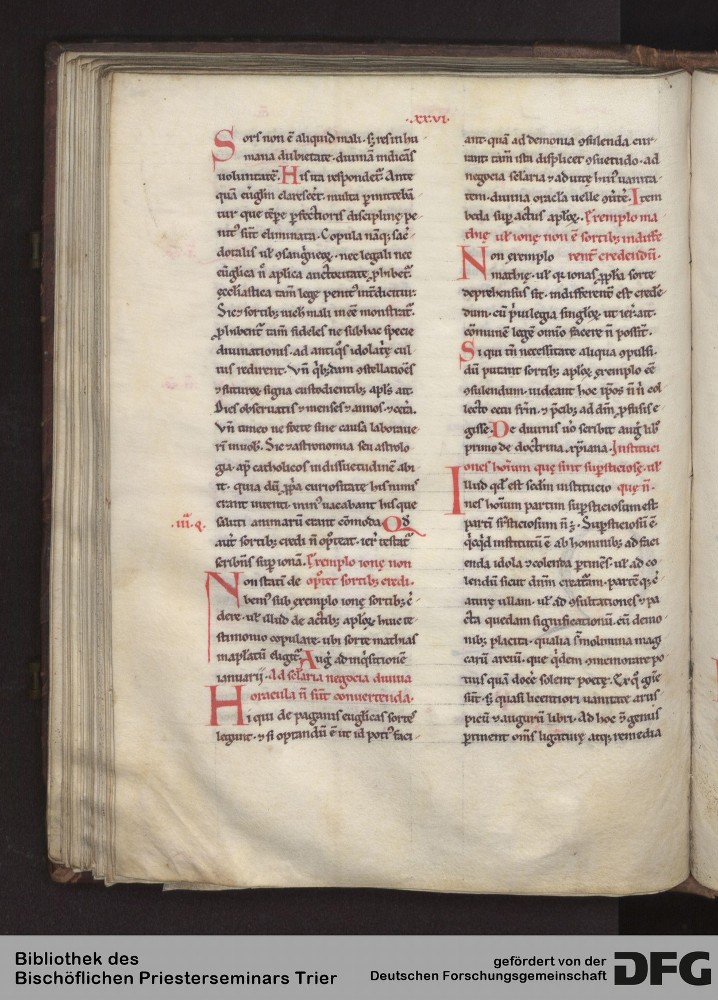 .xxvi.
Sors non ē aliquid mali. sꝫ res in hu
mana dubietate. diuinā indicās
uoluntatē. His ita respondet᷑. Ante
quā eu̅gl̅m clarescet᷑. multa ꝑmitteba̅
tur que te̅ꝑe ꝑfectioris discipline pe
nit᷒ su̅t eliminata. Copula na̅qꝫ sac̅
dotalis ul̅ ꝯsanguineoꝝ. nec legali nec
eu̅glica ul̅ aplica auctoritate ꝓhibet᷑
ęccl̅iastica tam̅ lege penit᷒ int̅dicitur.
Sic ⁊ sortibꝫ nichil mali in ē̅ē monstrat᷑.
ꝓhibent᷑ tam̅ fideles ne sub hac specie
diuinationis. ad antiq̅s idolatrię cul
tus redirent. Vn̅ q̅bꝫdam ꝯstellatio̅es
⁊ futuroꝝ signa custodientibꝫ apl̅s ait.
Dies obseruatis ⁊ menses ⁊ annos. ⁊ cet̅a.
Vn̅ timeo ne forte sine causa laboraue
ri̅ in uob̅. Sic ⁊ astronomia seu astrolo
ga. ap̅ catholicos in dissuetudine̅ abi
it. quia du̅ ꝓpria curiositate his nimi᷒
erant intenti. min᷒ uacabant his que
saluti animarū erant co̅moda. Qd̅
.iii.q.
aut̅ sortibꝫ credi n̅ oporteat. ier̅ testat᷑
scribens sup ionā. Exemplo ione non
Non statim de oportet sortibꝫ credi.
bem᷒ sub exemplo ionę sortibꝫ c̅
dere. ul̅ illud de actibꝫ apl̅oꝝ huic te
stimonio copulare. ubi sorte mathias
in aplatū eligit᷑. Aug̅ ad inq̅sitione̅
ianuarij. Ad sec̅laria negocia diuina
oracula n̅ su̅t conuertenda.
Hi qui de paginis eu̅glicis sortes
legunt. ⁊ si optandū ē ut id poti᷒ faci
ant. quā ad demonia ꝯsulenda cur
rant. tam̅ ista displicet ꝯsuetudo. ad
negocia sec̅laria ⁊ ad uitę hui᷒ uanita
tem. diuina orac̅la uelle ꝯu̅te̅. Item
beda sup actus apl̅oꝝ. Exemplo ma
thię ul̅ ionę non ē sortibꝫ indiffe
Non exemplo rent̅ credendū.
mathię. ul̅ q̅ ionas ꝓph̅a sorte
deprehensus sit. indifferent̅ est crede̅
dum. cu̅ priuilegia singl̅oꝝ. ut ier̅ ait.
co̅munē legē om̅io facere n̅ possi̅t.
Si qui tn̅ necessitate aliqua ꝯpulsi.
du̅ putant sortibꝫ apl̅oꝝ exemplo ē̅ē
ꝯsulendum. uideant hoc ip̅os n̅ n̅ col
lecto cetu fr̅m. ⁊ p̅cibꝫ ad dm̅ ꝓfusis e
gisse. De diuinis uo̅ scribit aug̅ lib̅
primo de doctrina xp̅iana. Instituci
ones ho̅ium quę sunt sup̅sticiosę. ul̅
Illud qd̅ est sc̅dm institucio que n̅.
nes ho̅ium partim sup̅sticiosum est
parti̅ sup̅sticiosum n̅ ē. Sup̅sticiosū ē.
q̅cq̅d institutū ē ab hominibꝫ ad faci
enda idola ⁊ colenda ꝑtine̅s. ul̅ ad co
lendū sicut dm̅ creaturam. parte̅qꝫ c̅
aturę ullam. ul̅ ad ꝯsultationes ⁊ pa
cta quedam significationū. cu̅ demo
nibꝫ placita. qualia s̅ molimina mag
carū artiū. que q̅dem ꝯmemorare po
tius quā doc̅e solent poetę. Ex q̅ gn̅e
sunt. sꝫ quasi licentiori uanitate arus
picū ⁊ augurū libri. Ad hoc g̅ genus
ꝑtinent om̅s ligaturę atqꝫ remedia
Bibliothek des
Bischöflichen Priesterseminars Trier
gefördert von der
Deutschen Forschungsgemeinschaft
DFG